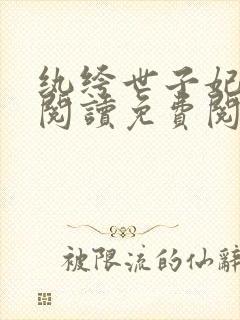 纨绔世子妃
閱讀免費閱
被限流的仙辭